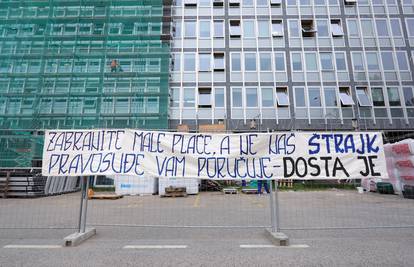 ZABRANITE MALE PLAĆE, A NE NAŠ ŠTRAJK
PRAVOSUĐE VAM PORUČUJE - DOSTA JE